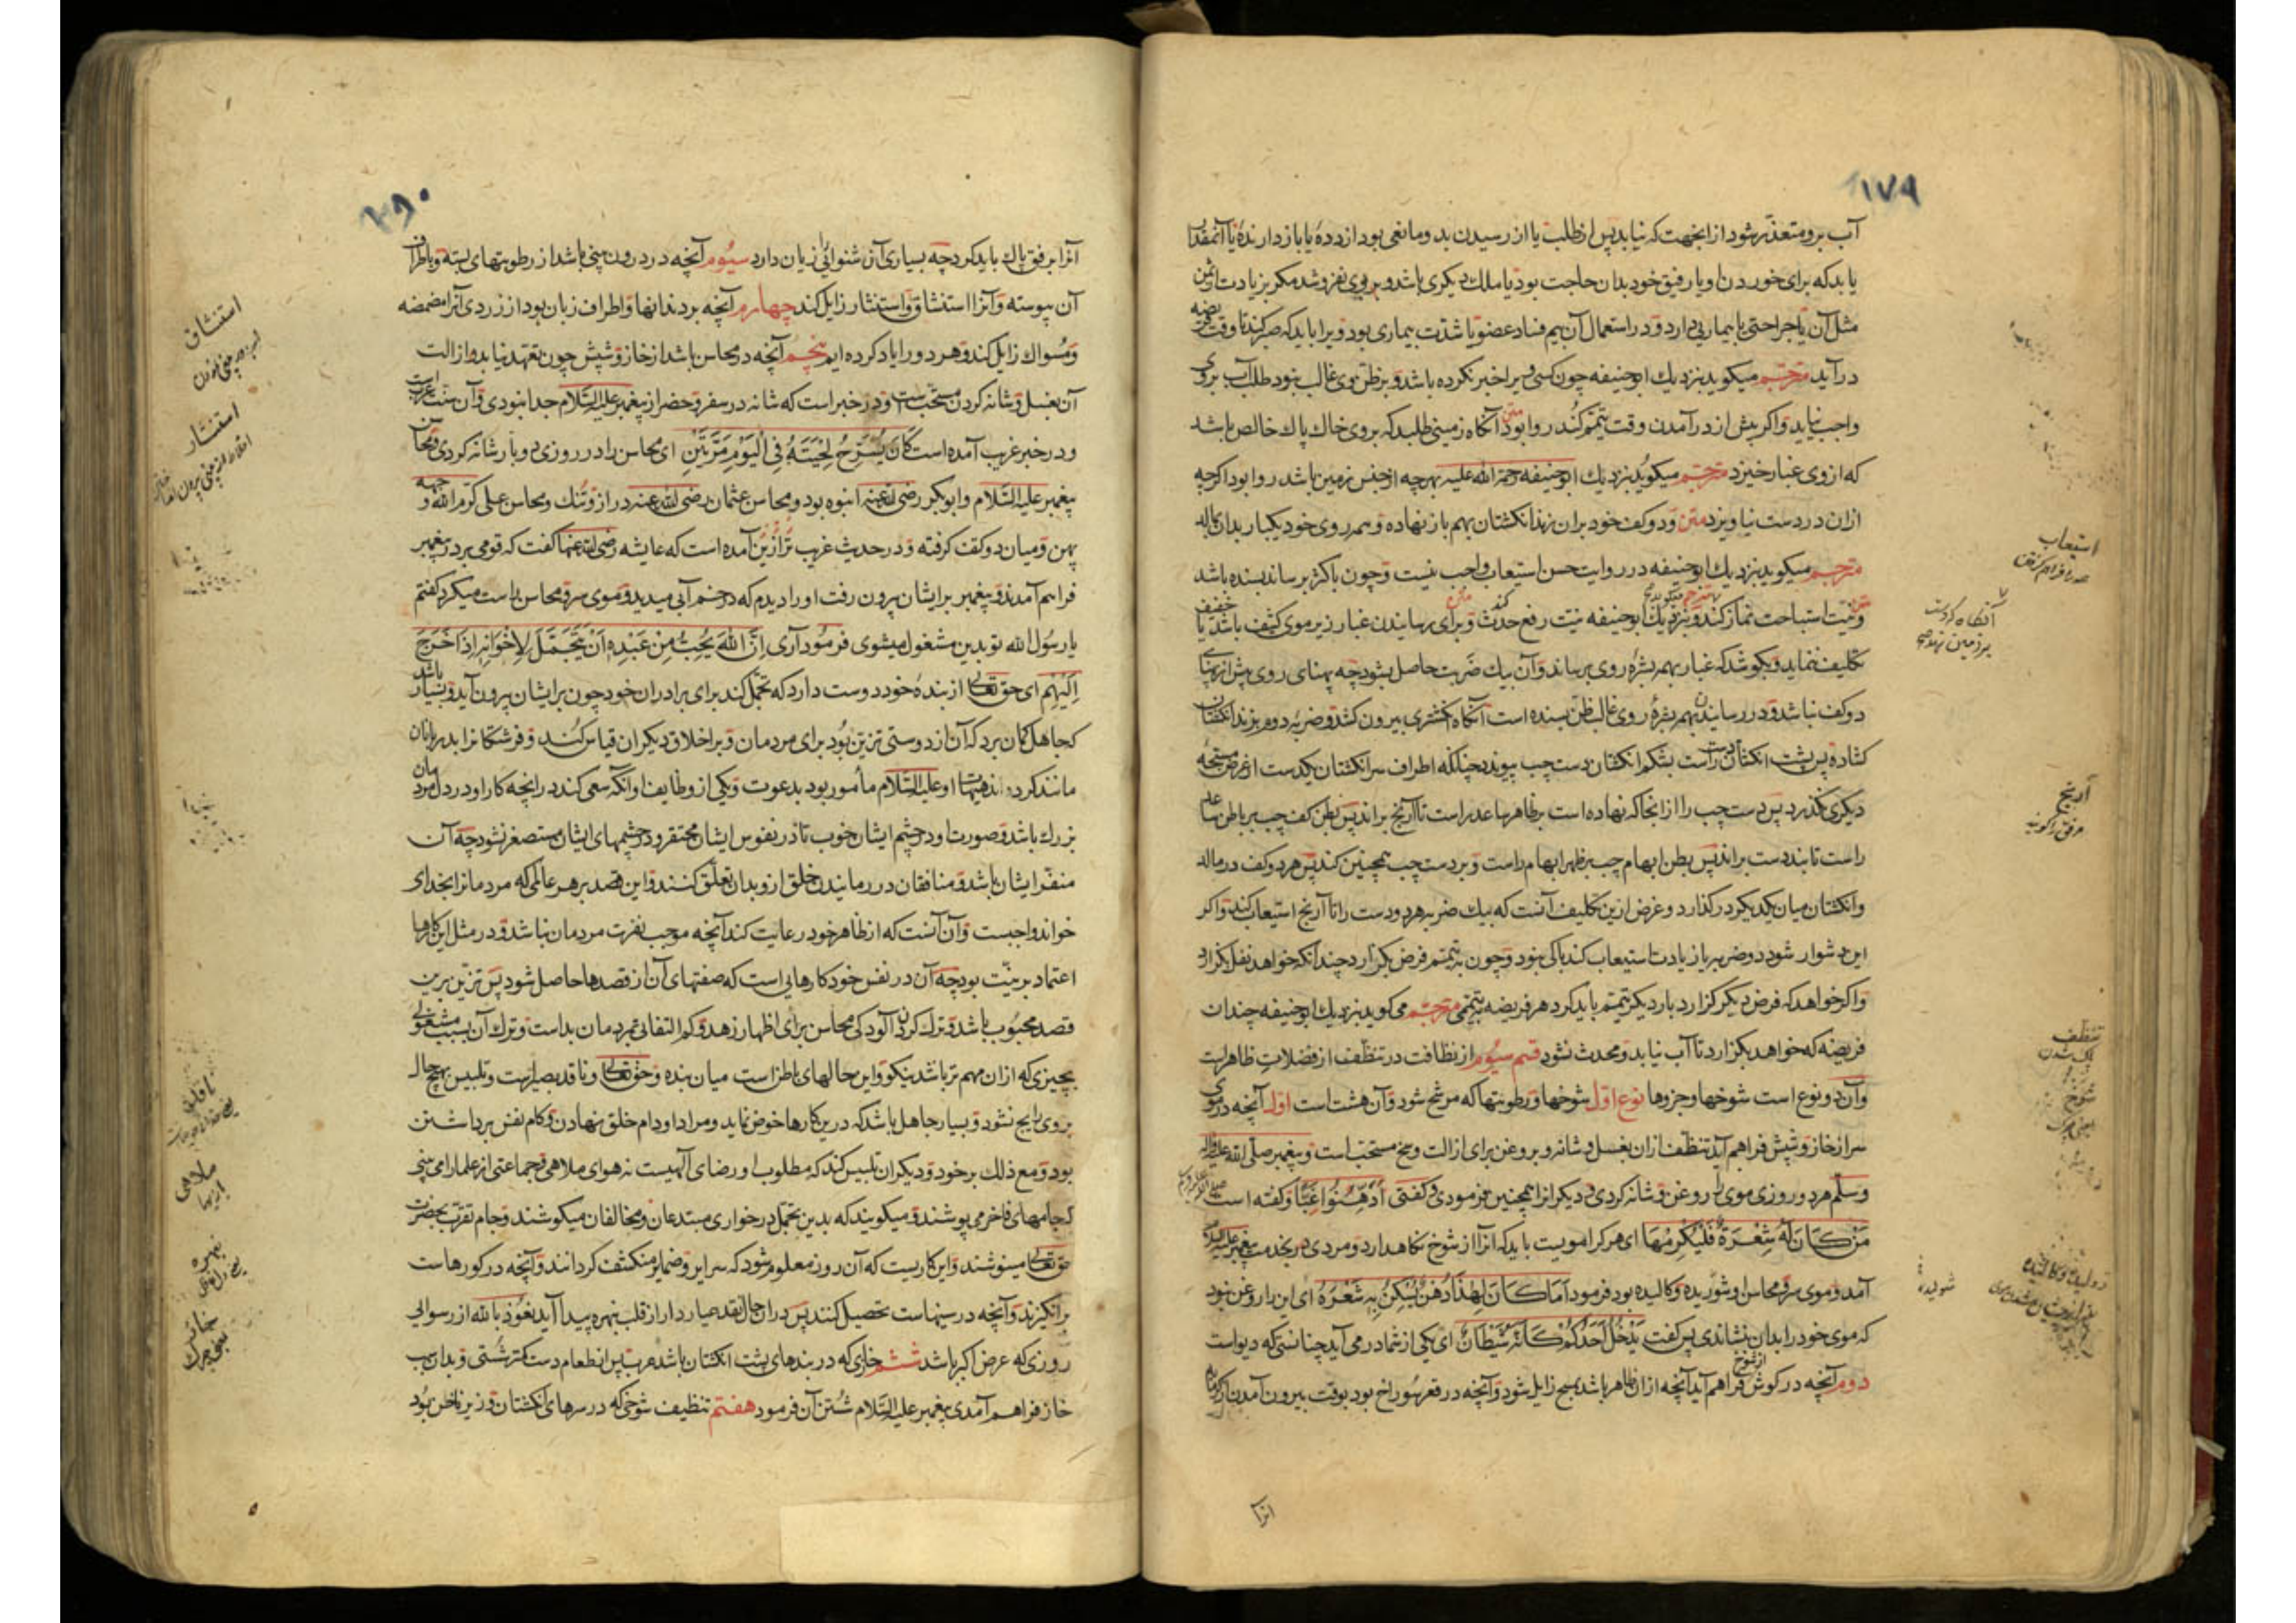 ۱۷۹
آب برو متعذر شود از آنجهت که نیابد پس از طلب یا از رسیدن بد و مانعی بود از دده یا باز دارنده یا آنمقدار
یابد که برای خوردن او یا رفیق خود بدان حاجت بود یا ملک دیگری باشد و بروی نفروشد مکر بزیادت از ثمن
مثل آن یا جراحتی یا بیماریی دارد و در استعمال آن بیم فساد عضو یا شدت بیماری بود ویرا باید که صبر کند تا وقت فریضه
در آید مترجم میکوید بنزدیک ابوحنیفه چون کسی ویرا خبر نکرده باشد و بر ظن وی غالب نبود طلب آب بروی
واجب نیاید و اکر پیش از در آمدن وقت تیمم کند روا بود متن آنکاه زمینی طلبد که بروی خاک پاک خالص باشد
که از وی غبار خیزد مترجم میکوید بنزدیک ابوحنیفه رحمة الله علیه بهرچه از جنس زمین باشد روا بود اکرچه
ازان در دست نیاویزد متن و دو کف خود بران نهد انکشتان بهم باز نهاده و بر روی خود یکبار بدان بماله
مترجم میکوید بنزدیک ابوحنیفه در روایت حسن استیعاب واجب نیست و چون باکثر برساند بسنده باشد
متن و نیت استباحت نماز کند و مترجم میکوید بنزدیک ابوحنیفه نیت رفع حدث کند متن و برای رسانیدن غبار زیر موی کثیف باشد یا خفیف
تکلیف ننماید و بکوشد که غبار بهمه بشره روی برساند و آن بیک ضربت حاصل شود چه پهنای روی بیش از پهنای
دو کف نباشد و در رسانیدن بهمه بشره روی غالب ظن بسنده است آنکاه انکشتری بیرون کشد و ضربه دوم بزند انکشتان
کشاده پس پشت انکشتان دست راست بشکم انکشتان دست چپ پیوندد چنانکه اطراف سر انکشتان یکدست از عرض مسبحه
دیکری نکذرد پس دست چپ را از آنجا که نهاده است بر ظاهر ساعد راست تا آرنج براند پس بطن کف چپ بر باطن ساعد
راست تا بند دست براند پس بطن ابهام چپ بر ظهر ابهام راست و بر دست چپ همچنین کند پس هر دو کف درماله
و انکشتان میان یکدیکر در کذارد و غرض ازین تکلیف آنست که بیک ضربه هر دو دست را تا آرنج استیعاب کند و اکر
این دشوار شود دو ضربه یا زیادت استیعاب کند باکی نبود و چون بتیمم فرض بکزارد چندانکه خواهد نفل بکزارد
و اکر خواهد که فرض دیکر کزارد بار دیکر تیمم باید کرد هر فریضه بتیممی مترجم می کوید بنزدیک ابوحنیفه چندان
فریضه که خواهد بکزارد تا آب نیابد و محدث نشود قسم سیوم از نظافت در تنظف از فضلات ظاهر است
و آن دو نوع است شوخها و جزوها نوع اول شوخها و رطوبتها که مرشح شود و آن هشت است اول آنچه در موی
سر از خاز و شپش فراهم آید تنظف ازان بغسل و شانه و بروغن برای ازالت وسخ مستحب است و پیغمبر صلی الله علیه و آله
وسلم هر دو روزی موی را روغن و شانه کردی و دیکرانرا همچنین فرمودی و کفتی ادهنوا غبا و کفته است
من کان له شعرة فلیکرمها ای هر کرا مویست باید که آنرا از شوخ نکاهدارد و مردی در خدمت پیغمبر علیه السلام
آمد و موی سر و محاسن او شوریده و کالیده بود فرمود اما کان لهذا دهن یسکن به شعره ای این را روغن نبود
که موی خود را بدان بنشاندی پس کفت یدخل احدکم کانه شیطان ای یکی از شما در می آید چنانستی که دیو است
دوم آنچه در کوش از شوخ فراهم آید آنچه ازان ظاهر باشد بمسح زایل شود و آنچه در قعر سوراخ بود بوقت بیرون آمدن از کرمابه
آنرا
استیعاب
آرنج
مرفق را کویند
تنظف
پاک شدن
شوخ
شولیده
۳۹۰
آنرا برفق پاک باید کرد چه بسیاری آن شنوائی را زیان دارد سیوم آنچه در درون بینی باشد از رطوبتهای بسته و باطراف
آن پیوسته و آنرا استنشاق و استنثار زایل کند چهارم آنچه بر دندانها و اطراف زبان بود از زردی آنرا مضمضه
و مسواک زایل کند و هر دو را یاد کرده ایم پنجم آنچه در محاسن باشد از خاز و شپش چون تعهد نیابد و ازالت
آن بغسل و شانه کردن مستحب است و در خبر است که شانه در سفر و حضر از پیغمبر علیه السلام جدا نبودی و آن سنت عرب است
و در خبر غریب آمده است کان یسرح لحیته فی الیوم مرتین ای محاسن را در روزی دو بار شانه کردی و محاسن
پیغمبر علیه السلام و ابوبکر رضی الله عنه انبوه بود و محاسن عثمان رضی الله عنه دراز و تنک و محاسن علی کرم الله وجهه
پهن و میان دو کتف کرفته و در حدیث غریب تر ازین آمده است که عایشه رضی الله عنها کفت که قومی بر در پیغمبر
فراهم آمدند و پیغمبر بر ایشان بیرون رفت او را دیدم که در خم آبی میدید و موی سر و محاسن راست میکرد کفتم
یا رسول الله تو بدین مشغول میشوی فرمود آری ان الله یحب من عبده ان یتجمل لاخوانه اذا خرج
الیهم ای حق تعالی از بنده خود دوست دارد که تجمل کند برای برادران خود چون بر ایشان بیرون آید و بسیار باشد
که جاهل کمان برد که آن از دوستی تزین بود برای مردمان و بر اخلاق دیکران قیاس کند و فرشتکانرا بدربانان
مانند کرد، اند هیهات او علیه السلام مأمور بود بدعوت و یکی از وظایف او آنکه سعی کند در آنچه کار او در دل مردمان
بزرک باشد و صورت او در چشم ایشان خوب تا در نفوس ایشان محتقر و در چشمهای ایشان مستصغر نشود چه آن
منفر ایشان باشد و منافقان در رمانیدن خلق ازو بدان تعلق کنند و این قصد بر هر عالمی که مردمانرا بخدای
خواند واجبست و آن آنست که از ظاهر خود رعایت کند آنچه موجب نفرت مردمان نباشد و در مثل این کارها
اعتماد بر نیت بود چه آن در نفس خود کارهایی است که صفتهای آن از قصدها حاصل شود پس تزین برین
قصد محبوب باشد و ترک کردن آلودکی محاسن برای اظهار زهد و کم التفاتی بمردمان بد است و ترک آن بسبب مشغولی
بچیزی که ازان مهم تر باشد نیکو و این حالهای باطن است میان بنده و حق تعالی و ناقد بصیر است و تلبیس بهیچ حال
بروی رایج نشود و بسیار جاهل باشد که درین کارها خوض نماید و مراد او دام خلق نهادن و کام نفس برداشتن
بود و مع ذلک بر خود و دیکران تلبیس کند که مطلوب او رضای آلهیست نه هوای ملاهی و جماعتی از علما را می بینی
که جامهای فاخر می پوشند و میکویند که بدین تجمل در خواری مبتدعان و مخالفان میکوشند و جام تقرب بحضرت
حق تعالی مینوشند و این کاریست که آن روز معلوم شود که سرایر و ضمایر منکشف کردانند و آنچه در کورهاست
برانکیزند و آنچه در سینهاست تحصیل کنند پس دران حال نقد عیاردار از قلب نبهره پیدا آید نعوذ بالله از رسوایی
روزی که عرض اکبر باشد ششم خازی که در بندهای پشت انکشتان باشد عرب پس از طعام دست کمتر شستی و بدان سبب
خاز فراهم آمدی پیغمبر علیه السلام شستن آن فرمود هفتم تنظیف شوخی که در سرهای انکشتان و زیر ناخن بود
استنشاق
استنثار
ناقد
ملاهی
نبهره